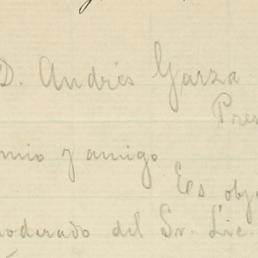 D. Andrés Garza
Pres
mio y amigo
Ees obj
moderado del Sr. Lic.